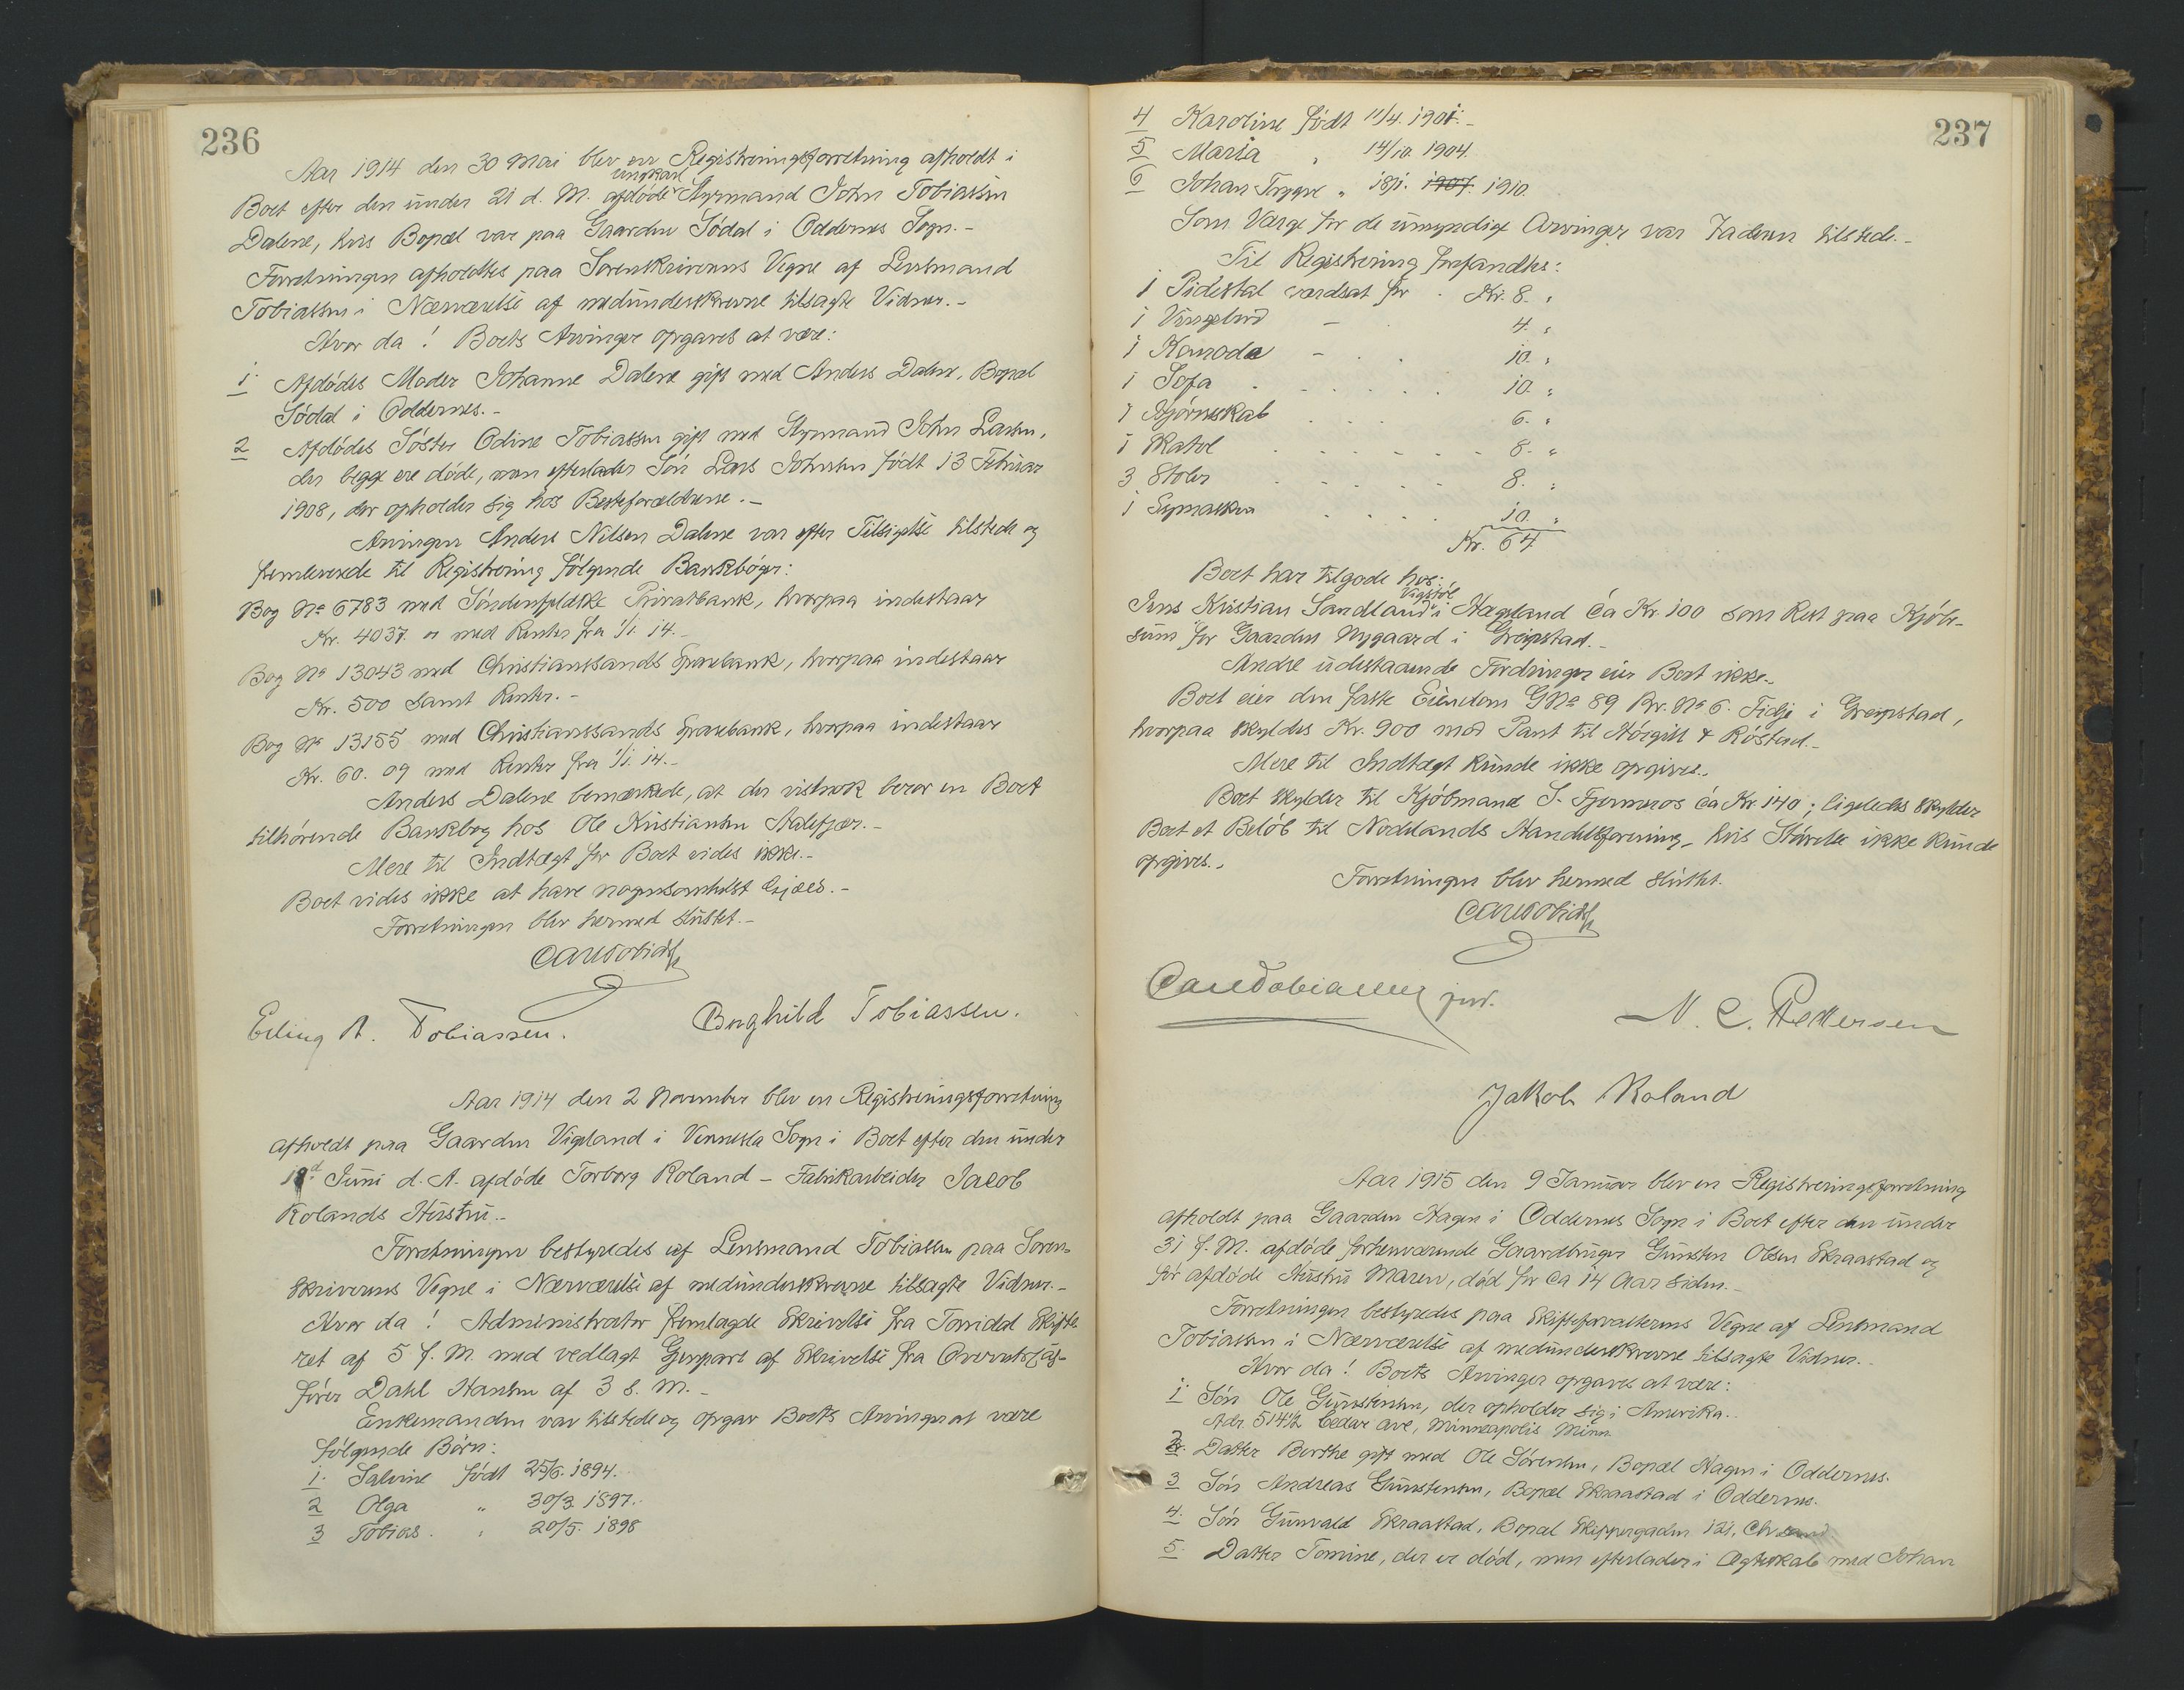 236
Aar 1914 den 30 Mai blev en Registreringsforretning afholdt i
Boet efter den under 21 d. M. afdöde ungkarl Styrmand John Tobiassen
Dalene, hvis Bopæl var paa Gaarden Södal i Oddernes Sogn.-
Forretningen afholdtes paa Sorenskriverens Vegne af Lensmand
Tobiassen i Nærværelse af medunderskrevne tilsagte Vidner.-
Hvor da! Boets Arvinger opgaves at være:
1 Afdödes Moder Johanne Dalene gift med Anders Dalene, Bopæl
Södal i Oddernes.-
2 Afdödes Söster Odine Tobiassen gift med Styrmand John Larsen,
der begge ere döde, men efterlader Sön Lars Johnsen födt 13 Februar
1908, der opholder sig hos Besteforældrene.-
Arvingen Anders Nilsen Dalene var efter Tilsigelse tilstede og
fremleverede til Registrering fölgende Bankböger:
Bog No 6783 med Söndenfjeldske Privatbank, hvorpaa indestaar
Kr. 4037. " med Renter fra 1/1. 14.-
Bog No 13043 med Christianssands Sparebank, hvorpaa indestaar
Kr. 500 samt Renter.-
Bog No 13155 med Christianssands Sparebank, hvorpaa indestaar
Kr. 60. 09 med Renter fra 1/1. 14.-
Anders Dalene bemærkede, at der vistnok beror en Boet
tilhörende Bankbog hos Ole Kristiansen Aalefjær.-
Mere til Indtægt for Boet vides ikke.-
Boet vides ikke at have nogensomhelst Gjæld.-
Forretningen blev hermed sluttet.-
Carl Tobiassen
Erling A. Tobiassen. Borghild Tobiassen.
Aar 1914 den 2 November blev en Registreringsforretning
afholdt paa Gaarden Vigeland i Vennesla Sogn i Boet efter den under
18d Juni d. A. afdöde Torborg Roland - Fabrikarbeider Jacob
Rolands Hustru.-
Forretningen bestyredes af Lensmand Tobiassen paa Soren-
skriverens Vegne i Nærværelse af medunderskrevne tilsagte Vidner.-
Hvor da! Administrator fremlagde Skrivelse fra Torridal Skifte-
ret af 5 f. M. med vedlagt Gjenpart af Skrivelse fra Overretssag-
förer Dahl Hansen af 3 s. M.-
Enkemanden var tilstede og opgav Boets Arvinger at være
fölgende Börn:
1. Salvine födt 25/6. 1894.
2 Olga " 30/3 1897.
3 Tobias. " 20/5. 1898
237
4 Karoline födt 11/4. 1901.-
5 Maria " 14/10. 1904.
6 Johan Trygve " 18/1. 1907. 1910.
Som Værge for de umyndige Arvinger var Faderen tilstede.-
Til Registrering forfandtes:
1 Pidestal værdsat for Kr. 8. "
1 Vingebord - 4. "
1 Komode - 10. "
1 Sofa 10. "
1 Hjörneskab 6. "
1 Skatol 8. "
3 Stoler 8. "
1 Symaskin 10. "
Kr. 64
Boet har tilgode hos:
Jens Kristian Sandland Vigstöl i Hægeland ca Kr. 100 som Rest paa Kjöbe-
sum for Gaarden Nygaard i Greipstad.-
Andre udestaaende Fordringer eier Boet ikke.-
Boet eier den faste Eiendom GNo 89 Br. No 6. Fidje i Greipstad,
hvorpaa skyldes Kr. 900 mod Pant til Höigilt & Röstad.-
Mere til Indtægt kunde ikke opgives.-
Boet skylder til Kjöbmand S. Fjermeros ca Kr 140; ligeledes skylder
Boet et Belöb til Nodelands Handelsforening, hvis Störrelse ikke kunde
opgives.-
Forretningen blev hermed sluttet.
Carl Tobiassen
Carl Tobiassen jun. N. C. Pedersen
Jakob Roland
Aar 1915 den 9 Januar blev en Registreringsforretning
afholdt paa Gaarden Hagen i Oddernes Sogn i Boet efter den under
31 f. M. afdöde forhenværende Gaardbruger Gunsten Olsen Skraastad og
för afdöde Hustru Maren, död for ca 14 Aar siden.-
Forretningen bestyredes paa Skifteforvalterens Vegne af Lensmand
Tobiassen i Nærværelse af medunderskrevne tilsagte Vidner.-
Hvor da! Boets Arvinger opgaves at være:
1 Sön Ole Gunstensen, der opholder sig i Amerika..
Adr. 514½ Cedar Ave, Minneapolis Minn.
2. Datter Berthe gift med Ole Sörensen, Bopæl Hagen i Oddernes.
3 Sön Andreas Gunstensen, Bopæl Skraastad i Oddernes.
4. Sön Gunvald Skraastad, Bopæl Skippergaden 121, Chr.sand.
5. Datter Tomine, der er död, men efterlader i Ægteskab med Johan